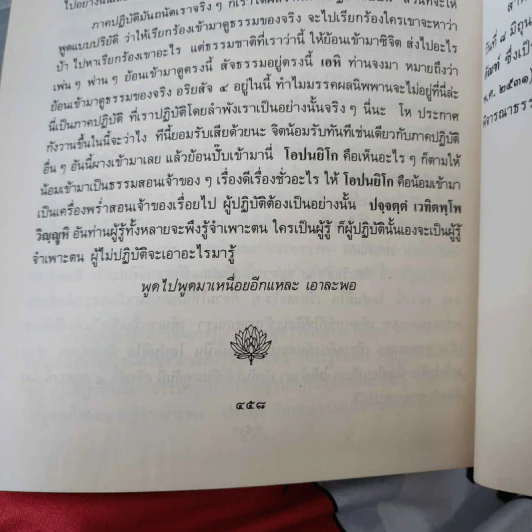 ภาคปฏิบัติมันถนัดเราจริง ๆ
พูดแบบปริยัติ ว่าให้เรียกร้องเข้ามาดูธรรมของจริง จะไปเรียกร้องใครเขาจะหาว่า
บ้า ไปหาเรียกร้องเขาอะไร แต่ธรรมชาติที่เราว่านี้ ให้ย้อนเข้ามาซิจิต ส่งไปอะไร
เพ่น ๆ พ่าน ๆ ย้อนเข้ามาดูตรงนี้ สัจธรรมอยู่ตรงนี้ เอหิ ท่านจงมา หมายถึงว่า
ย้อนเข้ามาดูธรรมของจริง อริยสัจ ๔ อยู่ในนี้ ทำไมมรรคผลนิพพานจะไม่อยู่ที่นี่ล่ะ
นี่เป็นภาคปฏิบัติ ที่เราปฏิบัติโดยลำพังเราเป็นอย่างนั้นจริง ๆ นี่นะ โห ประกาศ
กังวานขึ้นในนี้จะว่าไง ทีนี้ยอมรับเสียด้วยนะ จิตน้อมรับทันทีเช่นเดียวกับภาคปฏิบัติ
อื่น ๆ อันนี้ผางเข้ามาเลย แล้วย้อนปั๊บเข้ามานี่ โอปนยิโก คือเห็นอะไร ๆ ก็ตามให้
น้อมเข้ามาเป็นธรรมสอนเจ้าของ ๆ เรื่องดีเรื่องชั่วอะไร ให้ โอปนยิโก คือน้อมเข้ามา
เป็นเครื่องพร่ำสอนเจ้าของเรื่อยไป ผู้ปฏิบัติต้องเป็นอย่างนั้น ปจฺจตฺตํ เวทิตพฺโพ
วิญฺญูหิ อันท่านผู้รู้ทั้งหลายจะพึงรู้จำเพาะตน ใครเป็นผู้รู้ ก็ผู้ปฏิบัตินั้นเองจะเป็นผู้รู้
จำเพาะตน ผู้ไม่ปฏิบัติจะเอาอะไรมารู้
พูดไปพูดมาเหนื่อยอีกแหละ เอาละพอ
๔๕๘